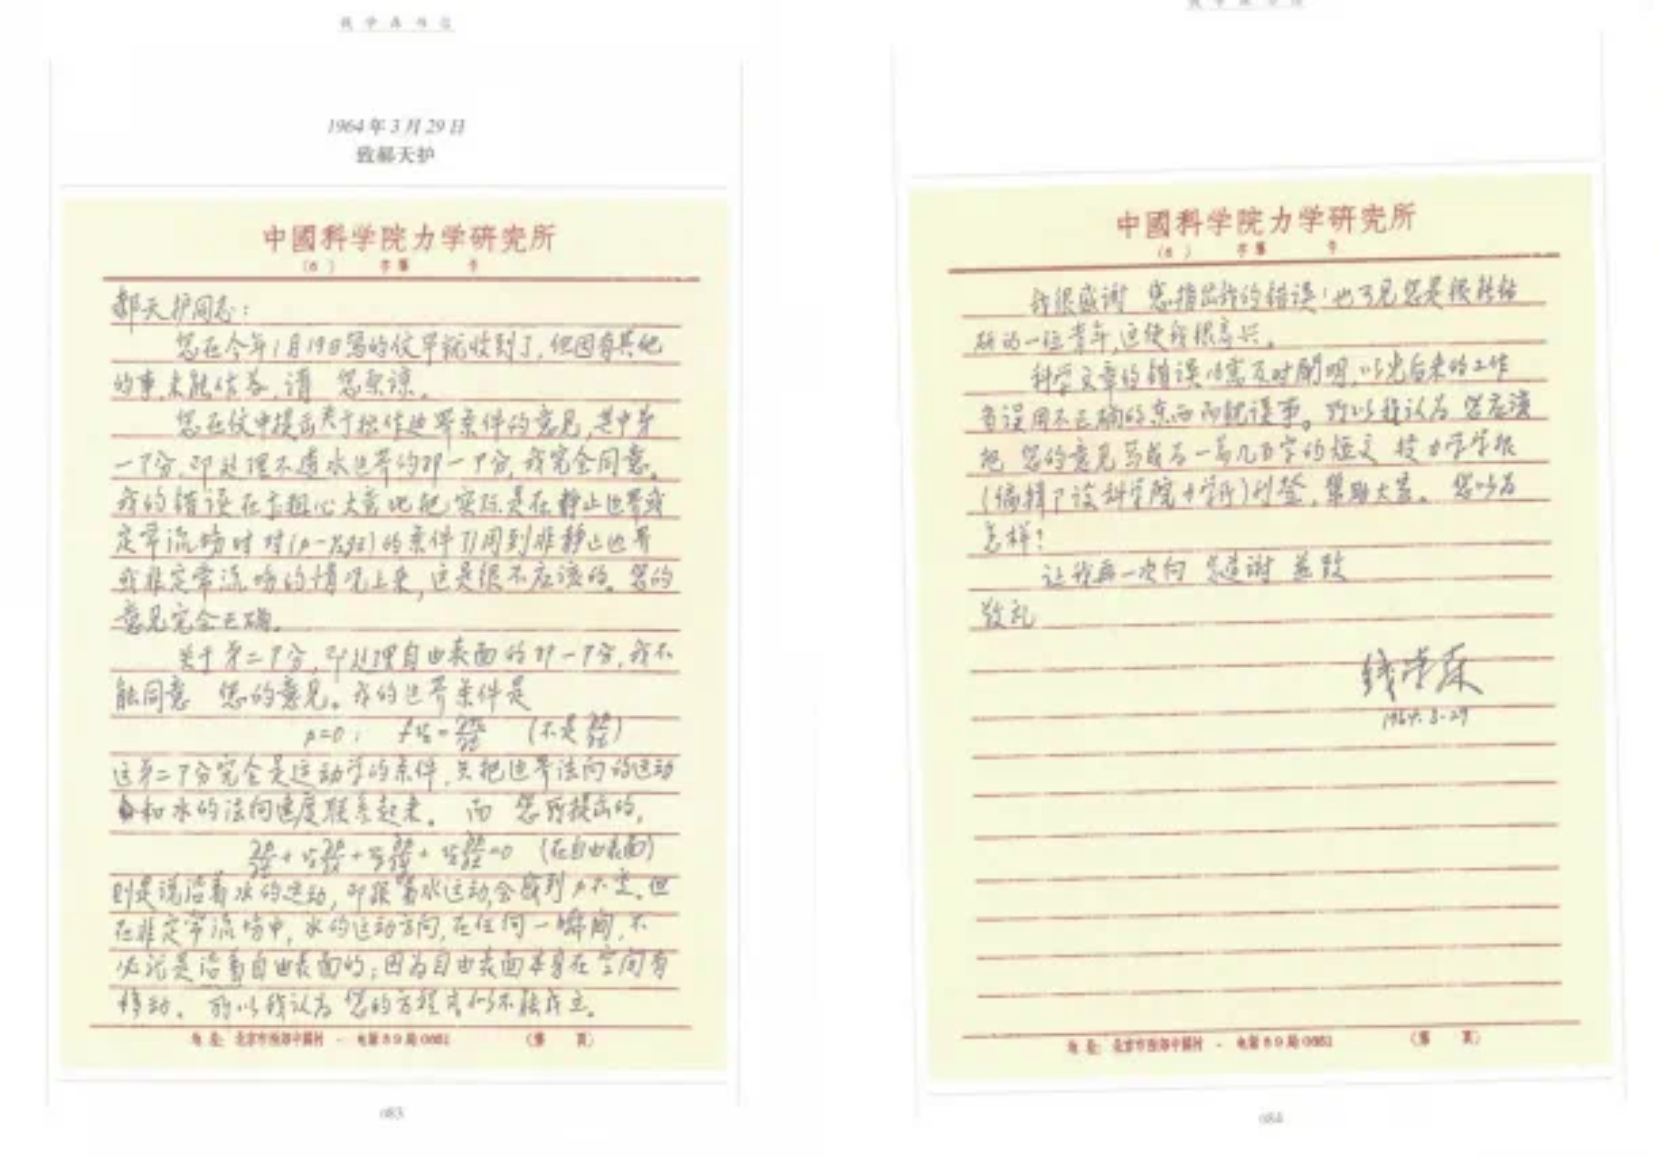 钱学森书信
1964年3月29日
致郝天护
中國科学院力学研究所
( ) 字第 号
郝天护同志:
您在今年1月19日写的信早就收到了,但因有其他
的事,未能作答,请 您原谅。
您在信中提出关于 边界条件的意见,其中第
一部分,即处理不透水边界的那一部分,我完全同意。
我的错误在于粗心大意地把实际是在静止边界或
定常流场时对 的条件引用到非静止边界
或非定常流场的情况上来,这是很不应该的。您的
意见完全正确。
关于第二部分,即处理自由表面的那一部分,我不
能同意 您的意见。我的边界条件是
p=0; (不是 )
这第二部分完全是运动学的条件,只把边界法向的运动
和水的法向速度联系起来。 而 您所提出的,
(在自由表面)
则是说沿着水的运动,即跟着水运动,会感到p不变。但
在非定常流场中,水的运动方向,在任何一瞬间,不
必就是沿着自由表面的;因为自由表面本身在空间有
移动。 所以我认为 您的方程式似不能成立。
地址:北京市西郊中關村 · 电話89局0661 (第 頁)
083
钱学森书信
中國科学院力学研究所
( ) 字第 号
我很感谢 您指出我的错误!也可见您是很能钻
研的一位青年,这使我很高兴。
科学文章的错误必需及时阐明,以免后来的工作
者误用不正确的东西而耽误事。所以我认为 您应该
把 您的意见写成 一篇几百字的短文 投力学学报
(编辑 科学院力学所)刊登,帮助大家。 您以为
怎样?
让我再一次向 您道谢 并致
敬礼
钱学森
1964.3.29
地址:北京市西郊中關村 · 电話89局0661 (第 頁)
084